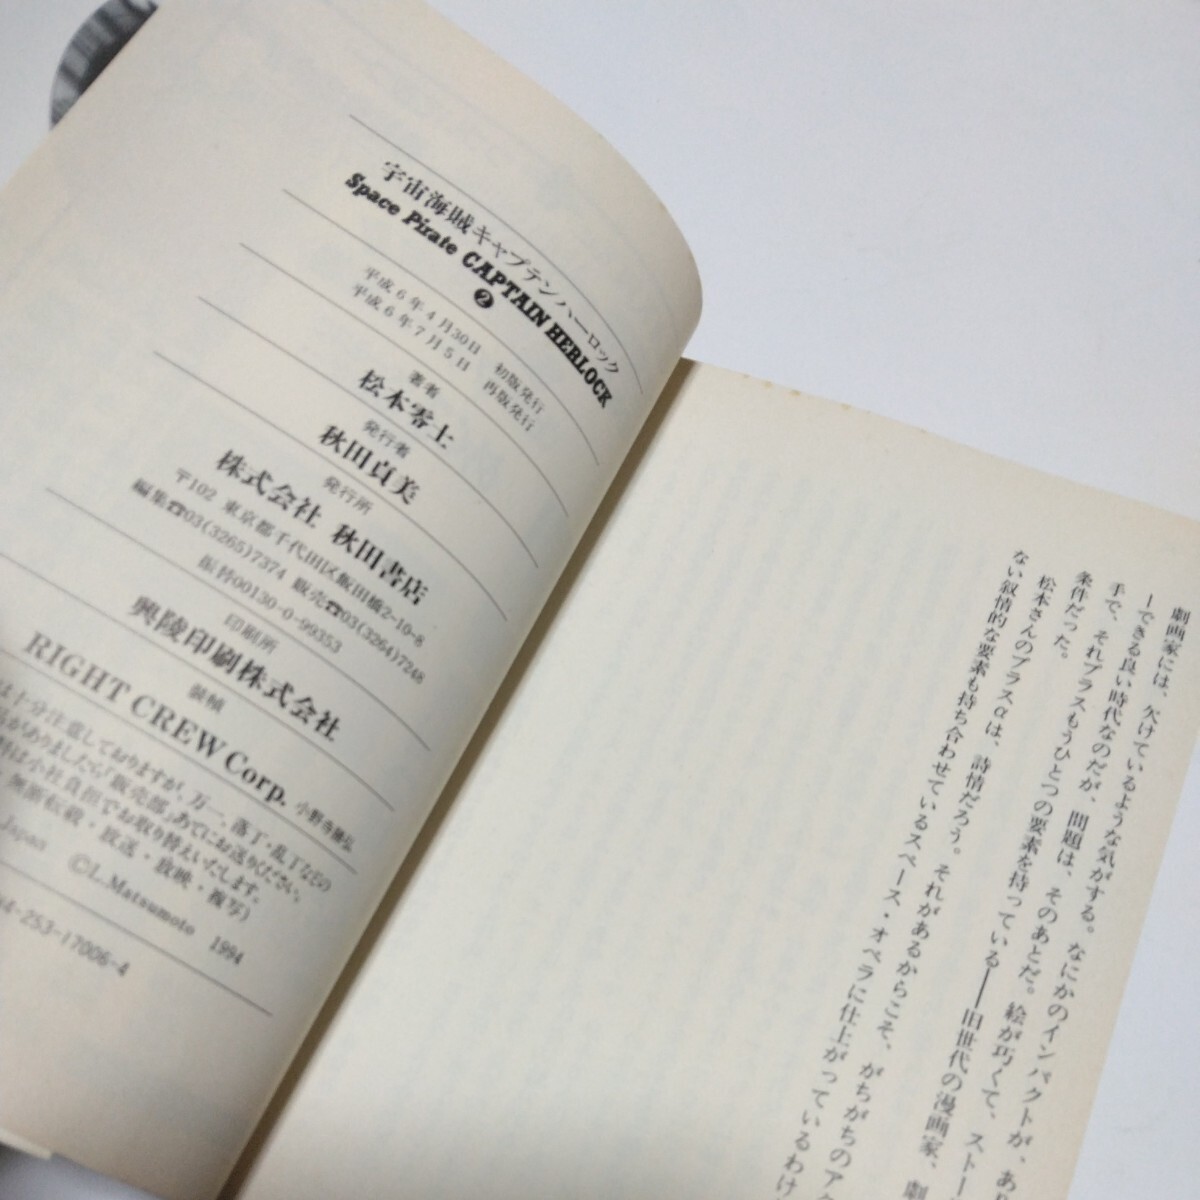 宇宙海賊キャプテンハーロック
Space Pirate CAPTAIN HERLOCK
❷
平成6年4月30日 初版発行
平成6年7月5日 再版発行
著者
松本零士
発行者
秋田貞美
発行所
株式会社 秋田書店
〒102 東京都千代田区飯田橋2-10-8
編集☎03(3265)7374 販売☎03(3264)7248
振替00130-0-99353
印刷所
興陵印刷株式会社
装幀
RIGHT CREW Corp.
は十分注意しておりますが、万一、落丁・乱丁などの
がありましたら「販売部」あてにお送りください。
は小社負担でお取り替えいたします。
無断転載・放送・放映・複写)
Japan ©L.Matsumoto 1994
4-253-17006-4
劇画家には、欠けているような気がする。なにかのインパクトが、あ
ーできる良い時代なのだが、問題は、そのあとだ。絵が巧くて、ストー
手で、それプラスもうひとつの要素を持っている──旧世代の漫画家、劇
条件だった。
松本さんのプラスαは、詩情だろう。それがあるからこそ、がちがちのア
ない叙情的な要素も持ち合わせているスペース・オペラに仕上がっているわけ